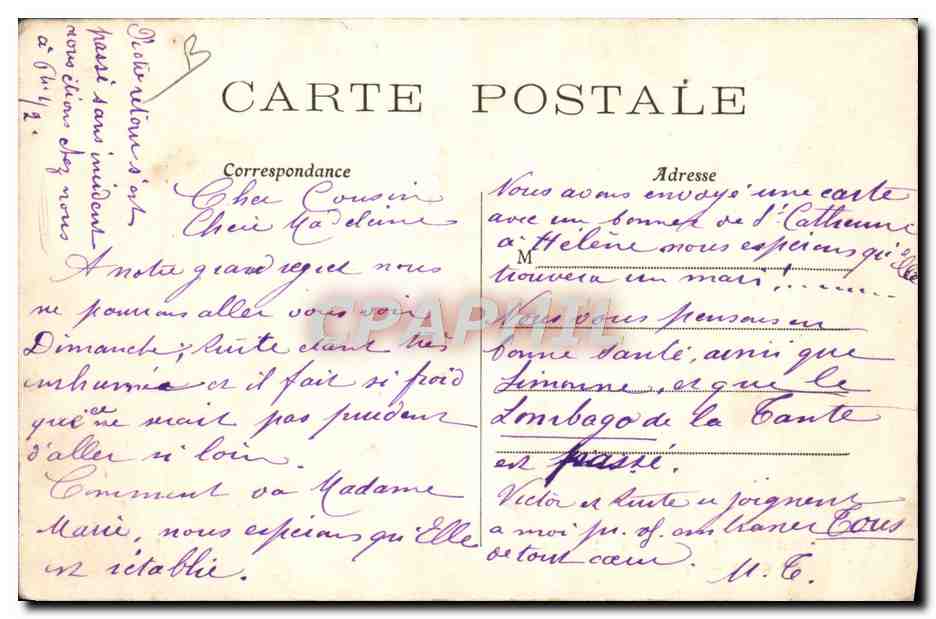 CARTE POSTALE
Correspondance
Cher Cousin
Chère Madeleine
A notre grand regret nous
ne pouvons aller vous voir
Dimanche, étant très
enrhumée et il fait si froid
que ce ne serait pas prudent
d'aller si loin.
Comment va Madame
Marie, nous espérons qu'Elle
est rétablie.
Adresse
Nous avons envoyé une carte
avec un bonnet de St Catherine
M
à Hélène nous espérons qu'elle
trouvera un mari!........
Nous vous pensons en
bonne santé, ainsi que
Simonne, et que le
Lombago de la Tante
est passé.
Victor et se joignent
a moi pr. vs. embrasser Tous
de tout cœur.
M.T.
retour s'est
passé sans incident
nous étions chez nous
à 1/2.
B
CPAPHIL